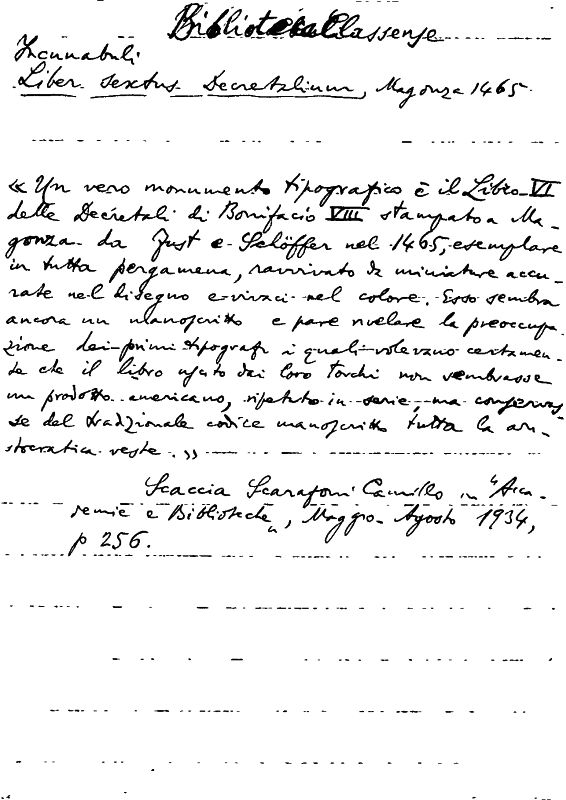 Biblioteca Classense
Incunabuli
Liber sextus Decretalium, Magonza 1465.
« Un vero monumento tipografico è il Libro VI
delle Decretali di Bonifacio VIII stampato a Ma-
gonza da Fust e Schöffer nel 1465, esemplare
in tutta pergamena, ravvivato da miniature accu-
rate nel disegno e vivaci nel colore. Esso sembra
ancora un manoscritto e pare rivelare la preoccupa-
zione dei primi tipografi i quali volevano certamen-
te che il libro uscito dai loro torchi non sembrasse
un prodotto americano, ripetuto in serie, ma conservas-
se del tradizionale codice manoscritto tutta la ari-
stocratica veste. »
Scaccia Scarafoni Camillo in "Acca-
demie e Biblioteche", Maggio-Agosto 1934,
p 256.